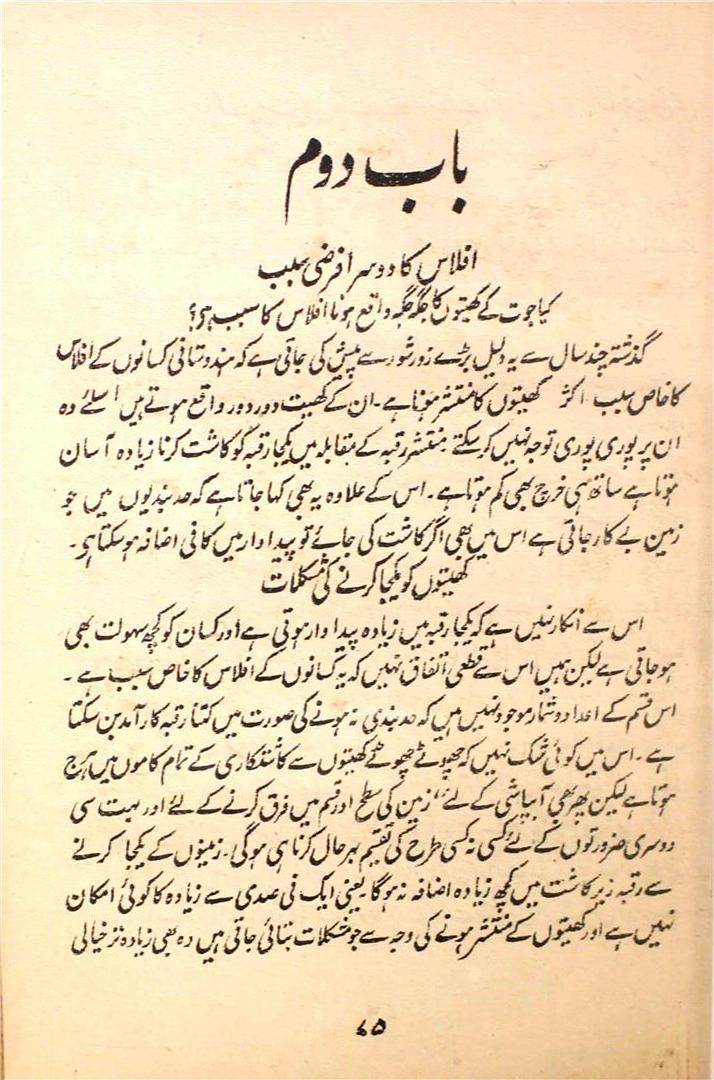 باب دوم
افلاس کا دوسرا فرضی سبب
کیا جوت کے کھیتوں کا جگہ جگہ واقع ہونا افلاس کا سبب ہے؟
گذشتہ چند سال سے یہ دلیل بڑے زور شور سے پیش کی جاتی ہے کہ ہندوستانی کسانوں کے افلاس
کا خاص سبب اکثر کھیتوں کا منتشر ہونا ہے۔ ان کے کھیت دور دور واقع ہوتے ہیں اسلئے وہ
ان پر پوری پوری توجہ نہیں کر سکتے۔ منتشر رقبہ کے مقابلہ میں یکجا رقبہ کو کاشت کرنا زیادہ آسان
ہوتا ہے ساتھ ہی خرچ بھی کم ہوتا ہے۔ اس کے علاوہ یہ بھی کہا جاتا ہے کہ حد بندیوں میں جو
زمین بے کار جاتی ہے اس میں بھی اگر کاشت کی جائے تو پیداوار میں کافی اضافہ ہو سکتا ہے۔
کھیتوں کو یکجا کرنے کی مشکلات
اس سے انکار نہیں ہے کہ یکجا رقبہ میں زیادہ پیداوار ہوتی ہے اور کسان کو کچھ سہولت بھی
ہو جاتی ہے لیکن ہمیں اس سے قطعی اتفاق نہیں کہ یہ کسانوں کے افلاس کا خاص سبب ہے۔
اس قسم کے اعداد و شمار موجود نہیں ہیں کہ حد بندی نہ ہونے کی صورت میں کتنا رقبہ کار آمد بن سکتا
ہے۔ اس میں کوئی شک نہیں کہ چھوٹے چھوٹے کھیتوں سے کاشتکاری کے تمام کاموں میں ہرج
ہوتا ہے لیکن پھر بھی آبپاشی کے لئے، زمین کی سطح اور قسم میں فرق کرنے کے لئے اور بہت سی
دوسری ضرورتوں کے لئے کسی نہ کسی طرح کی تقسیم بہر حال کرنا ہی ہوگی۔ زمینوں کے یکجا کرنے
سے رقبہ زیر کاشت میں کچھ زیادہ اضافہ نہ ہوگا یعنی ایک فی صدی سے زیادہ کا کوئی امکان
نہیں ہے اور کھیتوں کے منتشر ہونے کی وجہ سے جو مشکلات بتائی جاتی ہیں وہ بھی زیادہ تر خیالی
۶۵